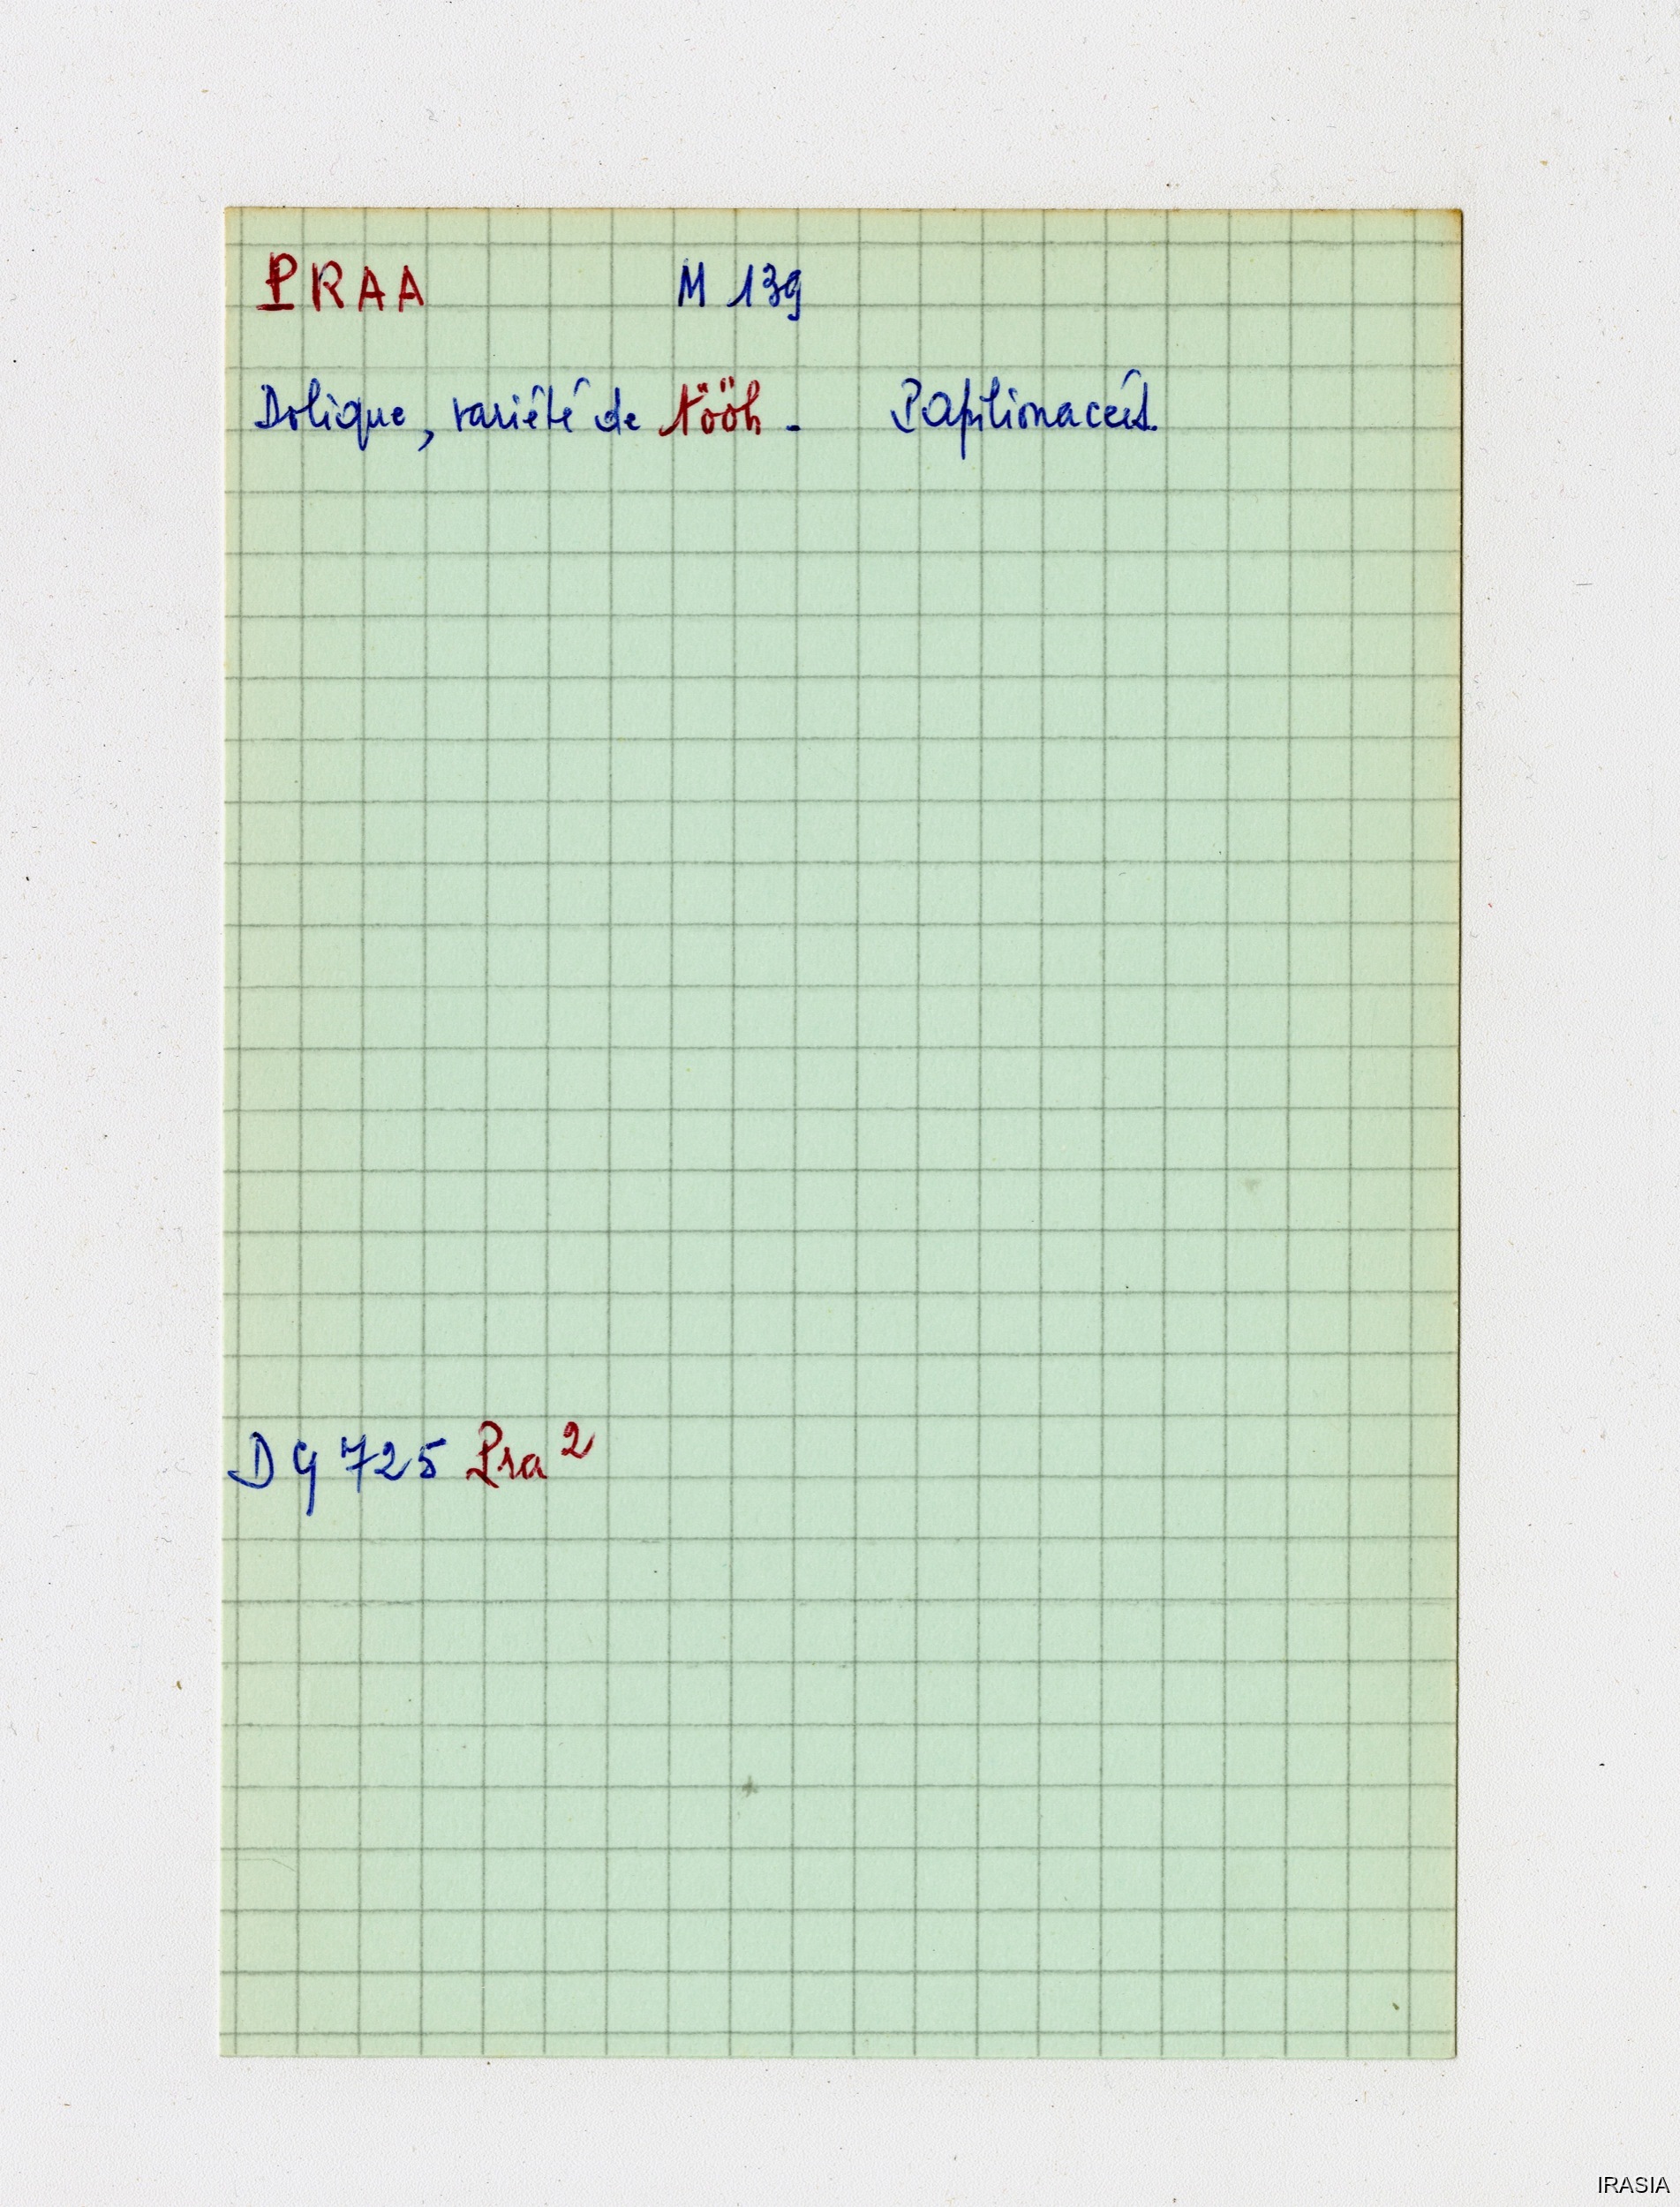 PRAA M 139
Dolique, variété de tööh - Papilionacées.
D G 725 Pra 2
IRASIA